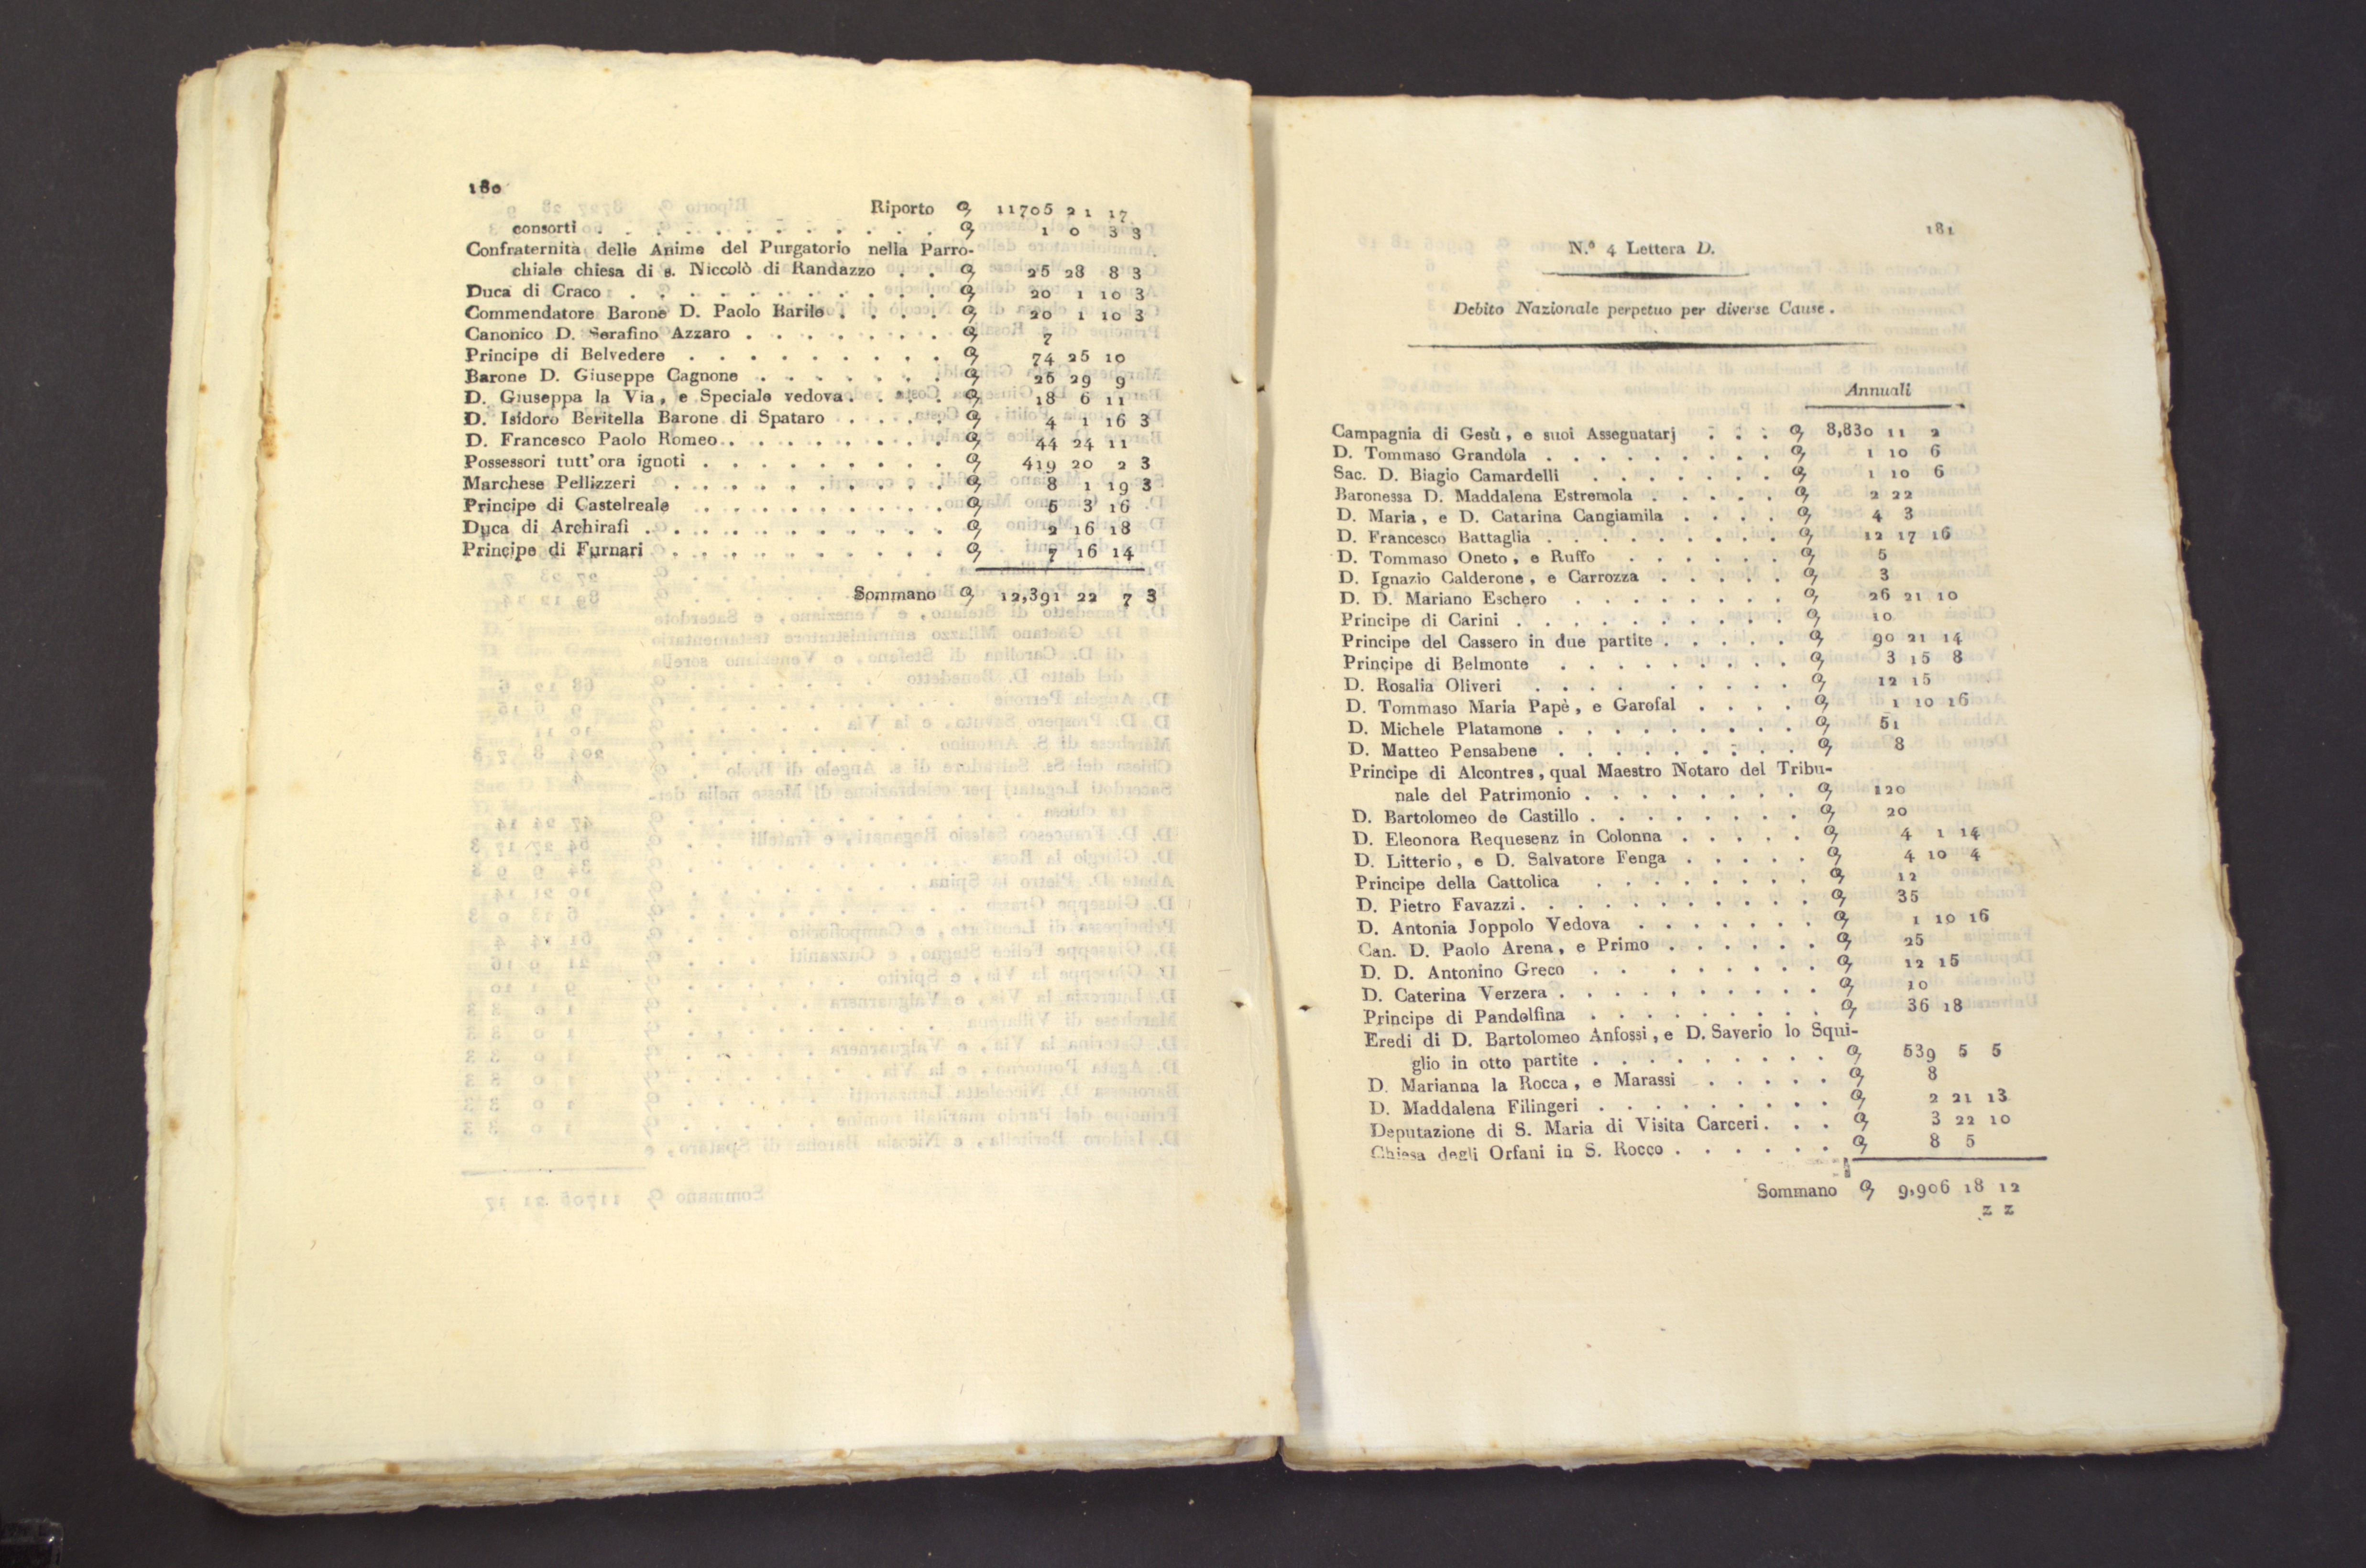 180
Riporto 11705 21 17
consorti . . . . . . . . . . . . 1 0 3 3
Confraternità delle Anime del Purgatorio nella Parro-
chiale chiesa di s. Niccolò di Randazzo . . 25 28 8 3
Duca di Craco . . . . . . . . . . . 20 1 10 3
Commendatore Barone D. Paolo Barile . . . . 20 1 10 3
Canonico D. Serafino Azzaro . . . . . . . 7
Principe di Belvedere . . . . . . . . . 74 25 10
Barone D. Giuseppe Cagnone . . . . . . . 26 29 9
D. Giuseppa la Via, e Speciale vedova . . . . 18 6 11
D. Isidoro Beritella Barone di Spataro . . . . 4 1 16 3
D. Francesco Paolo Romeo . . . . . . . . 44 24 11
Possessori tutt' ora ignoti . . . . . . . . . 419 20 2 3
Marchese Pellizzeri . . . . . . . . . . 8 1 19 3
Principe di Castelreale . . . . . . . . . 5 3 16
Duca di Archirafi . . . . . . . . . . . 2 16 18
Principe di Furnari . . . . . . . . . . 7 16 14
Sommano 12,391 22 7 3
181
N.º 4 Lettera D.
Debito Nazionale perpetuo per diverse Cause.
Annuali
Campagnia di Gesù, e suoi Assegnatarj . . . 8,830 11 2
D. Tommaso Grandola . . . . . . . . . 1 10 6
Sac. D. Biagio Camardelli . . . . . . . 1 10 6
Baronessa D. Maddalena Estremola . . . . . 2 22
D. Maria, e D. Catarina Cangiamila . . . . 4 3
D. Francesco Battaglia . . . . . . . . . 12 17 16
D. Tommaso Oneto, e Ruffo . . . . . . 5
D. Ignazio Calderone, e Carrozza . . . . . 3
D. D. Mariano Eschero . . . . . . . . 26 21 10
Principe di Carini . . . . . . . . . . 10
Principe del Cassero in due partite . . . . . 90 21 14
Principe di Belmonte . . . . . . . . . 3 15 8
D. Rosalia Oliveri . . . . . . . . . 12 15
D. Tommaso Maria Papè, e Garofal . . . . 1 10 16
D. Michele Platamone . . . . . . . . . 51
D. Matteo Pensabene . . . . . . . . . 8
Principe di Alcontres, qual Maestro Notaro del Tribu-
nale del Patrimonio . . . . . . . . 120
D. Bartolomeo de Castillo . . . . . . . . 20
D. Eleonora Requesenz in Colonna . . . . . 4 1 14
D. Litterio, e D. Salvatore Fenga . . . . . 4 10 4
Principe della Cattolica . . . . . . . . 12
D. Pietro Favazzi . . . . . . . . . . . 35
D. Antonia Joppolo Vedova . . . . . . . 1 10 16
Can. D. Paolo Arena, e Primo . . . . . . 25
D. D. Antonino Greco . . . . . . . . 12 15
D. Caterina Verzera . . . . . . . . . . 10
Principe di Pandolfina . . . . . . . . . 36 18
Eredi di D. Bartolomeo Anfossi, e D. Saverio lo Squi-
glio in otto partite . . . . . . . . . 539 5 5
D. Marianna la Rocca, e Marassi . . . . . 8
D. Maddalena Filingeri . . . . . . . . . 2 21 13
Deputazione di S. Maria di Visita Carceri . . . 3 22 10
Chiesa degli Orfani in S. Rocco . . . . . . 8 5
Sommano 9,906 18 12
z z